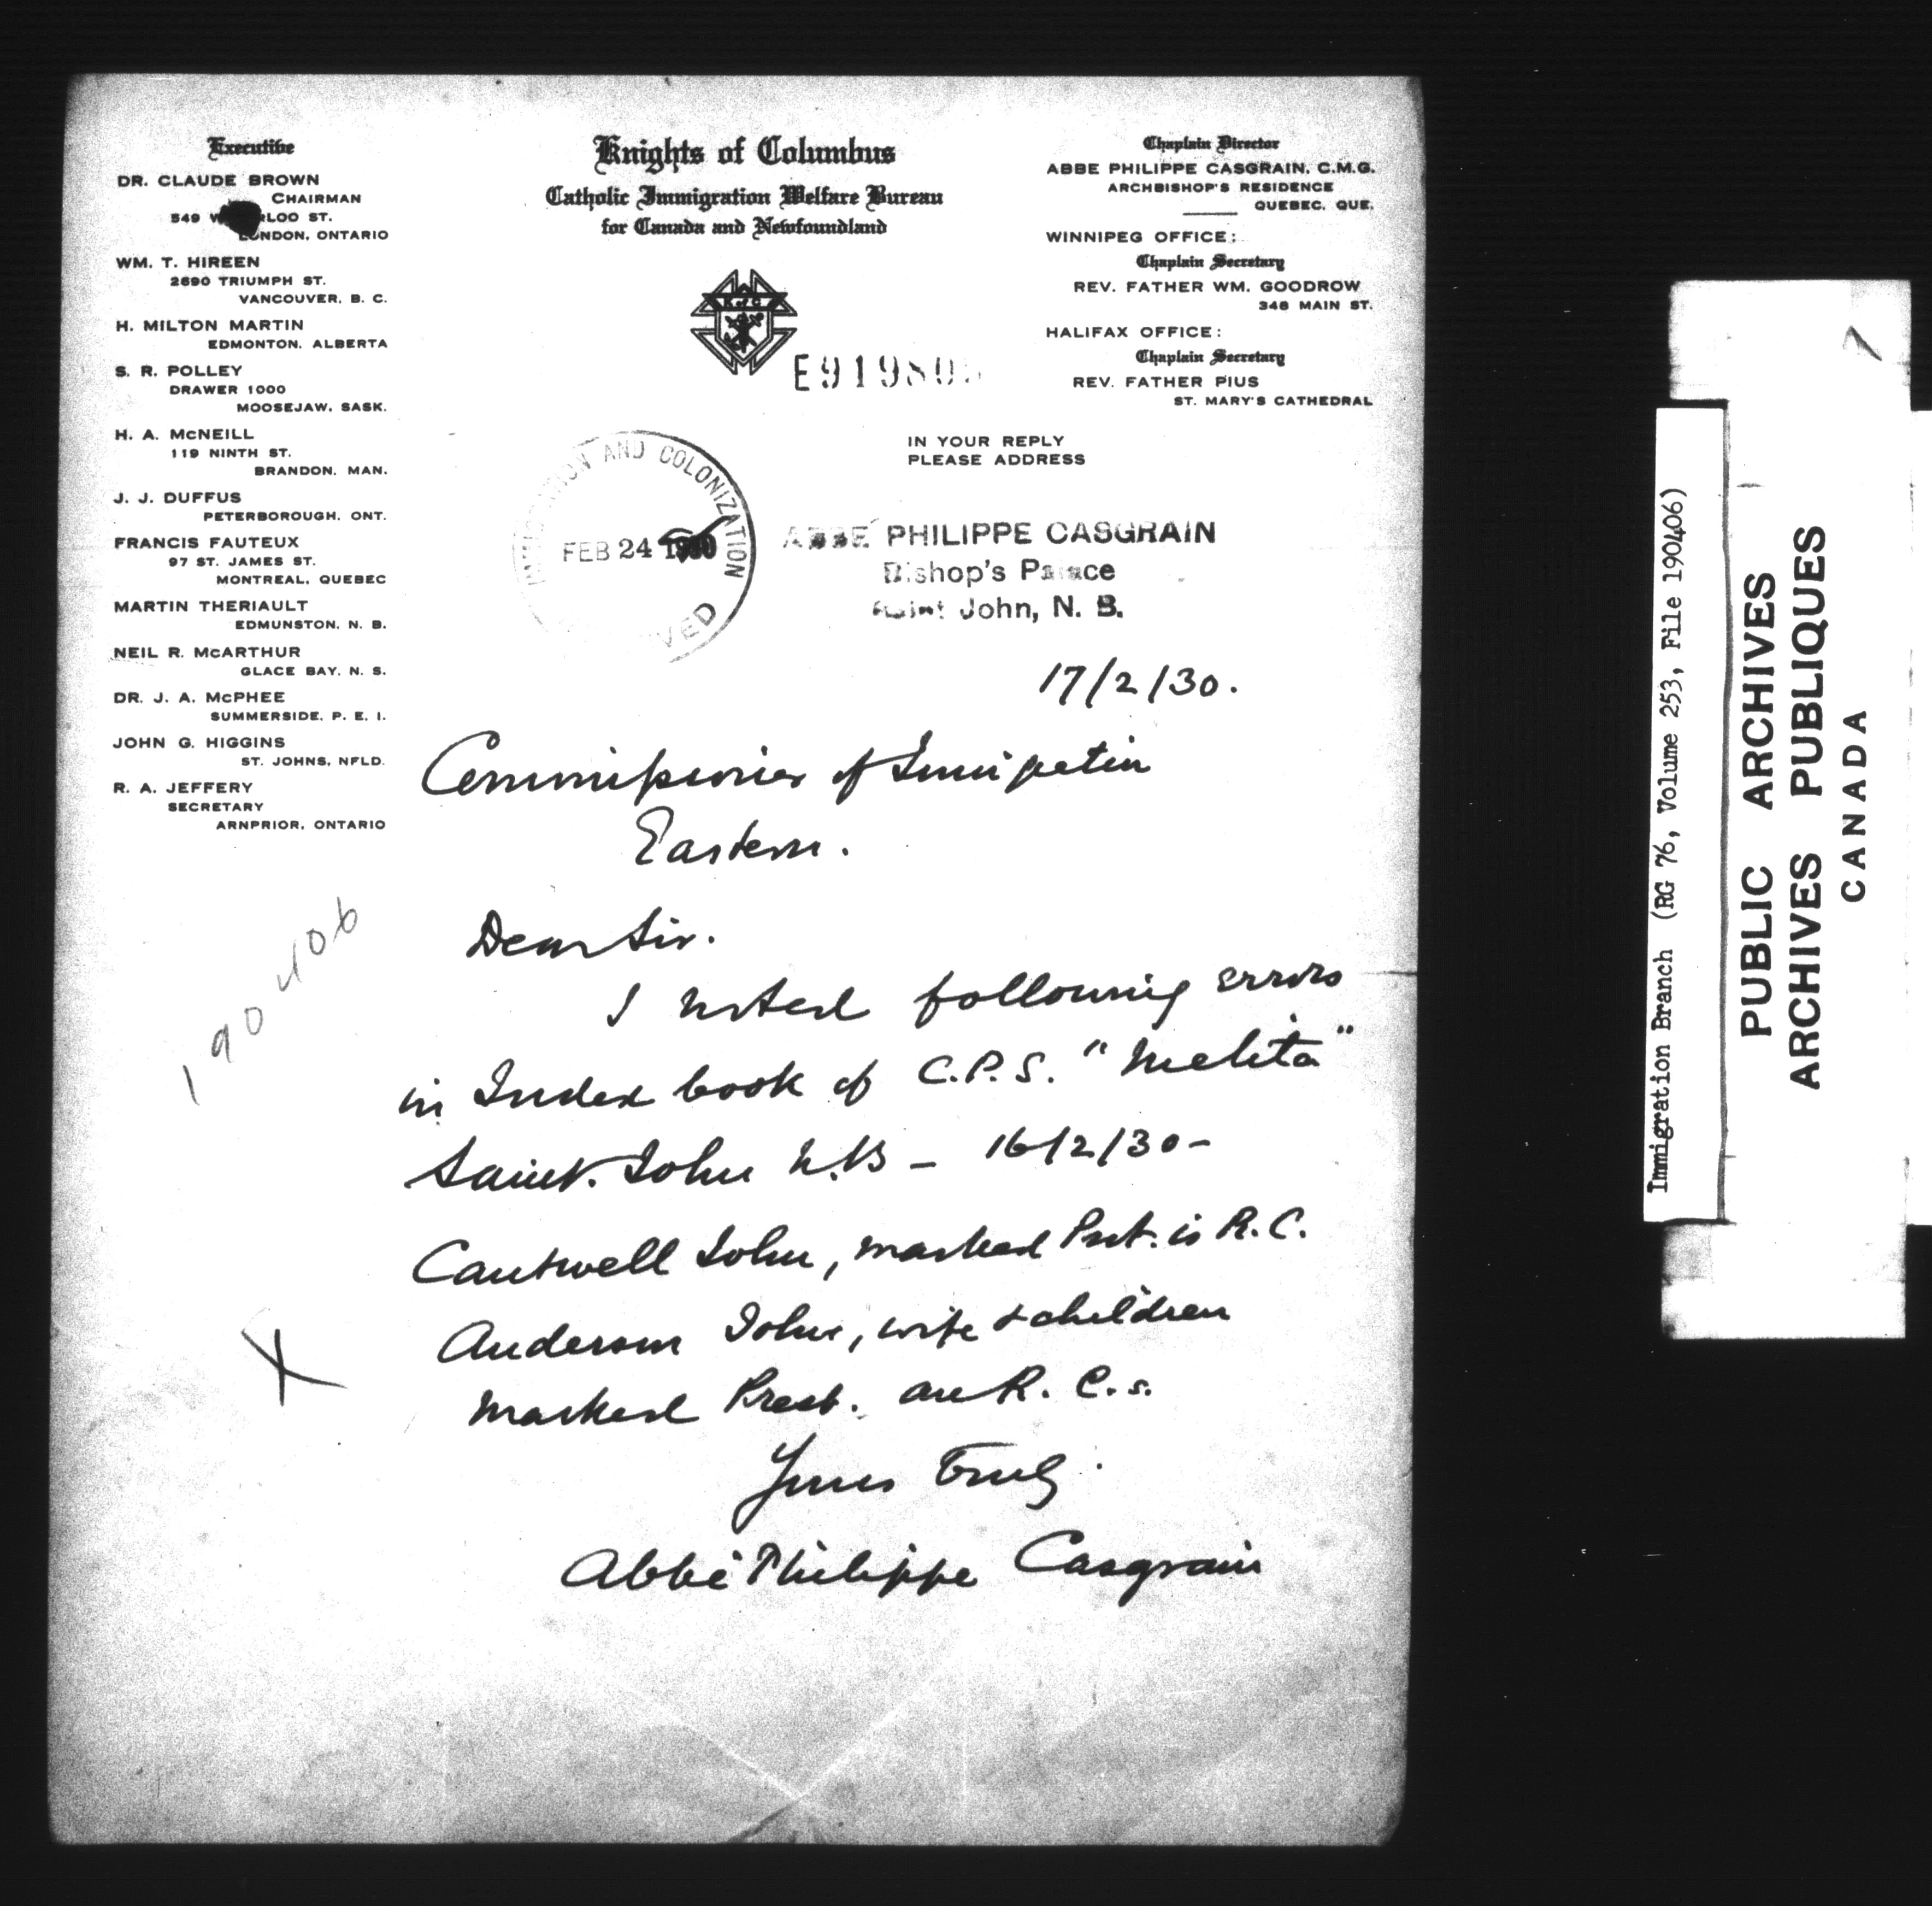 Executive
DR. CLAUDE BROWN
CHAIRMAN
549 W LOO ST.
LONDON, ONTARIO
WM. T. HIREEN
2690 TRIUMPH ST.
VANCOUVER, B. C.
H. MILTON MARTIN
EDMONTON, ALBERTA
S. R. POLLEY
DRAWER 1000
MOOSEJAW, SASK.
H. A. McNEILL
119 NINTH ST.
BRANDON, MAN.
J. J. DUFFUS
PETERBOROUGH, ONT.
FRANCIS FAUTEUX
97 ST. JAMES ST.
MONTREAL, QUEBEC
MARTIN THERIAULT
EDMUNSTON, N. B.
NEIL R. McARTHUR
GLACE BAY, N. S.
DR. J. A. McPHEE
SUMMERSIDE, P. E. I.
JOHN G. HIGGINS
ST. JOHNS, NFLD.
R. A. JEFFERY
SECRETARY
ARNPRIOR, ONTARIO
Knights of Columbus
Catholic Immigration Welfare Bureau
for Canada and Newfoundland
K of C
E91980
Chaplain Director
ABBE PHILIPPE CASGRAIN, C.M.G.
ARCHBISHOP'S RESIDENCE
QUEBEC, QUE.
WINNIPEG OFFICE:
Chaplain Secretary
REV. FATHER WM. GOODROW
348 MAIN ST.
HALIFAX OFFICE:
Chaplain Secretary
REV. FATHER PIUS
ST. MARY'S CATHEDRAL
IN YOUR REPLY
PLEASE ADDRESS
IMMIGRATION AND COLONIZATION
FEB 24 1930
RECEIVED
ABBÉ PHILIPPE CASGRAIN
Bishop's Palace
Saint John, N. B.
17/2/30.
Commissioner of Immigration
Eastern.
190406
Dear Sir.
I noted following errors
in Index book of C.P.S. "Melita"
Saint. John N.B – 16/2/30 –
Cantwell John, marked Prot. is R.C.
Anderson John, wife & children
marked Presb. are R. C. s.
X
Yours Truly.
Abbé Philippe Casgrain
Immigration Branch (RG 76, Volume 253, File 190406)
PUBLIC ARCHIVES
ARCHIVES PUBLIQUES
CANADA